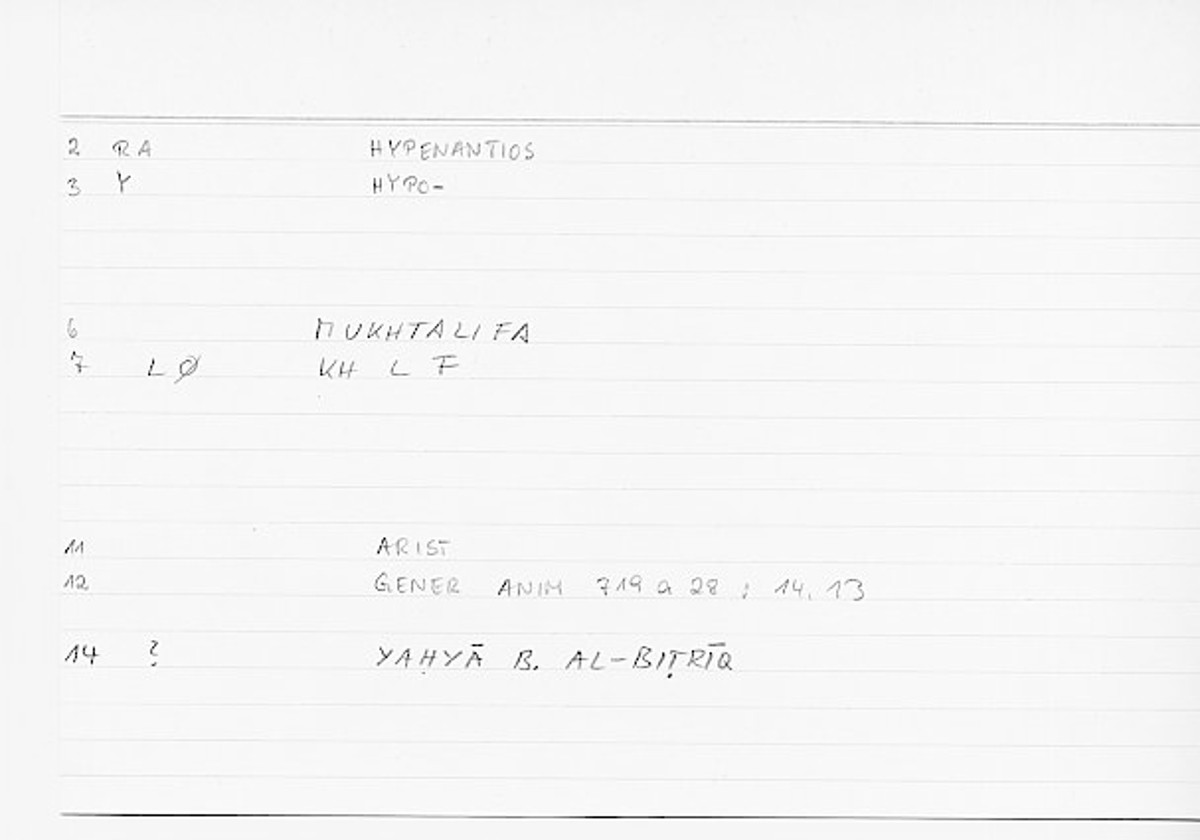 2 RA HYPENANTIOS
3 Y HYPO-
6 MUKHTALIFA
7 LØ KH L F
11 ARIST
12 GENER ANIM 719 a 28 ; 14, 13
14 ? YAḤYĀ B. AL-BIṬRĪQ